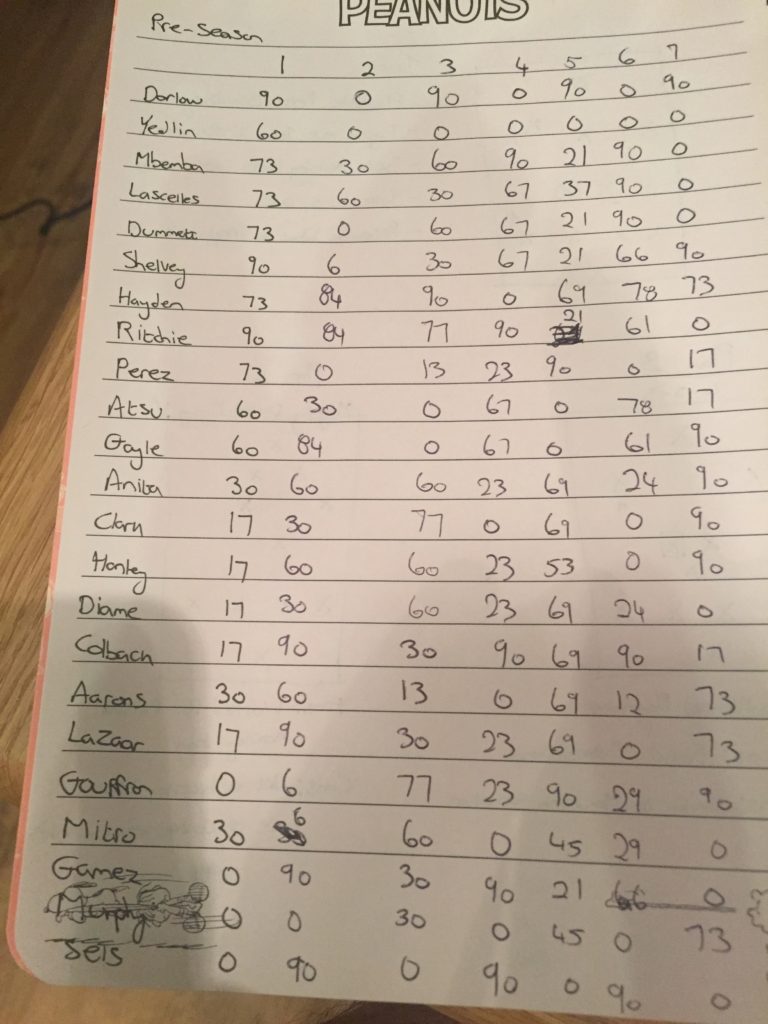 PEANUTS
Pre-Season
1 2 3 4 5 6 7
Darlow 90 0 90 0 90 0 90
Yedlin 60 0 0 0 0 0 0
Mbemba 73 30 60 90 21 90 0
Lascelles 73 60 30 67 37 90 0
Dummett 73 0 60 67 21 90 0
Shelvey 90 6 30 67 21 66 90
Hayden 73 84 90 0 69 78 73
Ritchie 90 84 77 90 21 61 0
Perez 73 0 13 23 90 0 17
Atsu 60 30 0 67 0 78 17
Gayle 60 84 0 67 0 61 90
Anita 30 60 60 23 69 24 90
Clark 17 30 77 0 69 0 90
Hanley 17 60 60 23 53 0 90
Diame 17 30 60 23 69 24 0
Colback 17 90 30 90 69 90 17
Aarons 30 60 13 0 69 12 73
Lazaar 17 90 30 23 69 0 73
Gouffran 0 6 77 23 90 29 90
Mitro 30 6 60 0 45 29 0
Gamez 0 90 30 90 21 66 0
Murphy 0 0 30 0 45 0 73
Sels 0 90 0 90 0 90 0